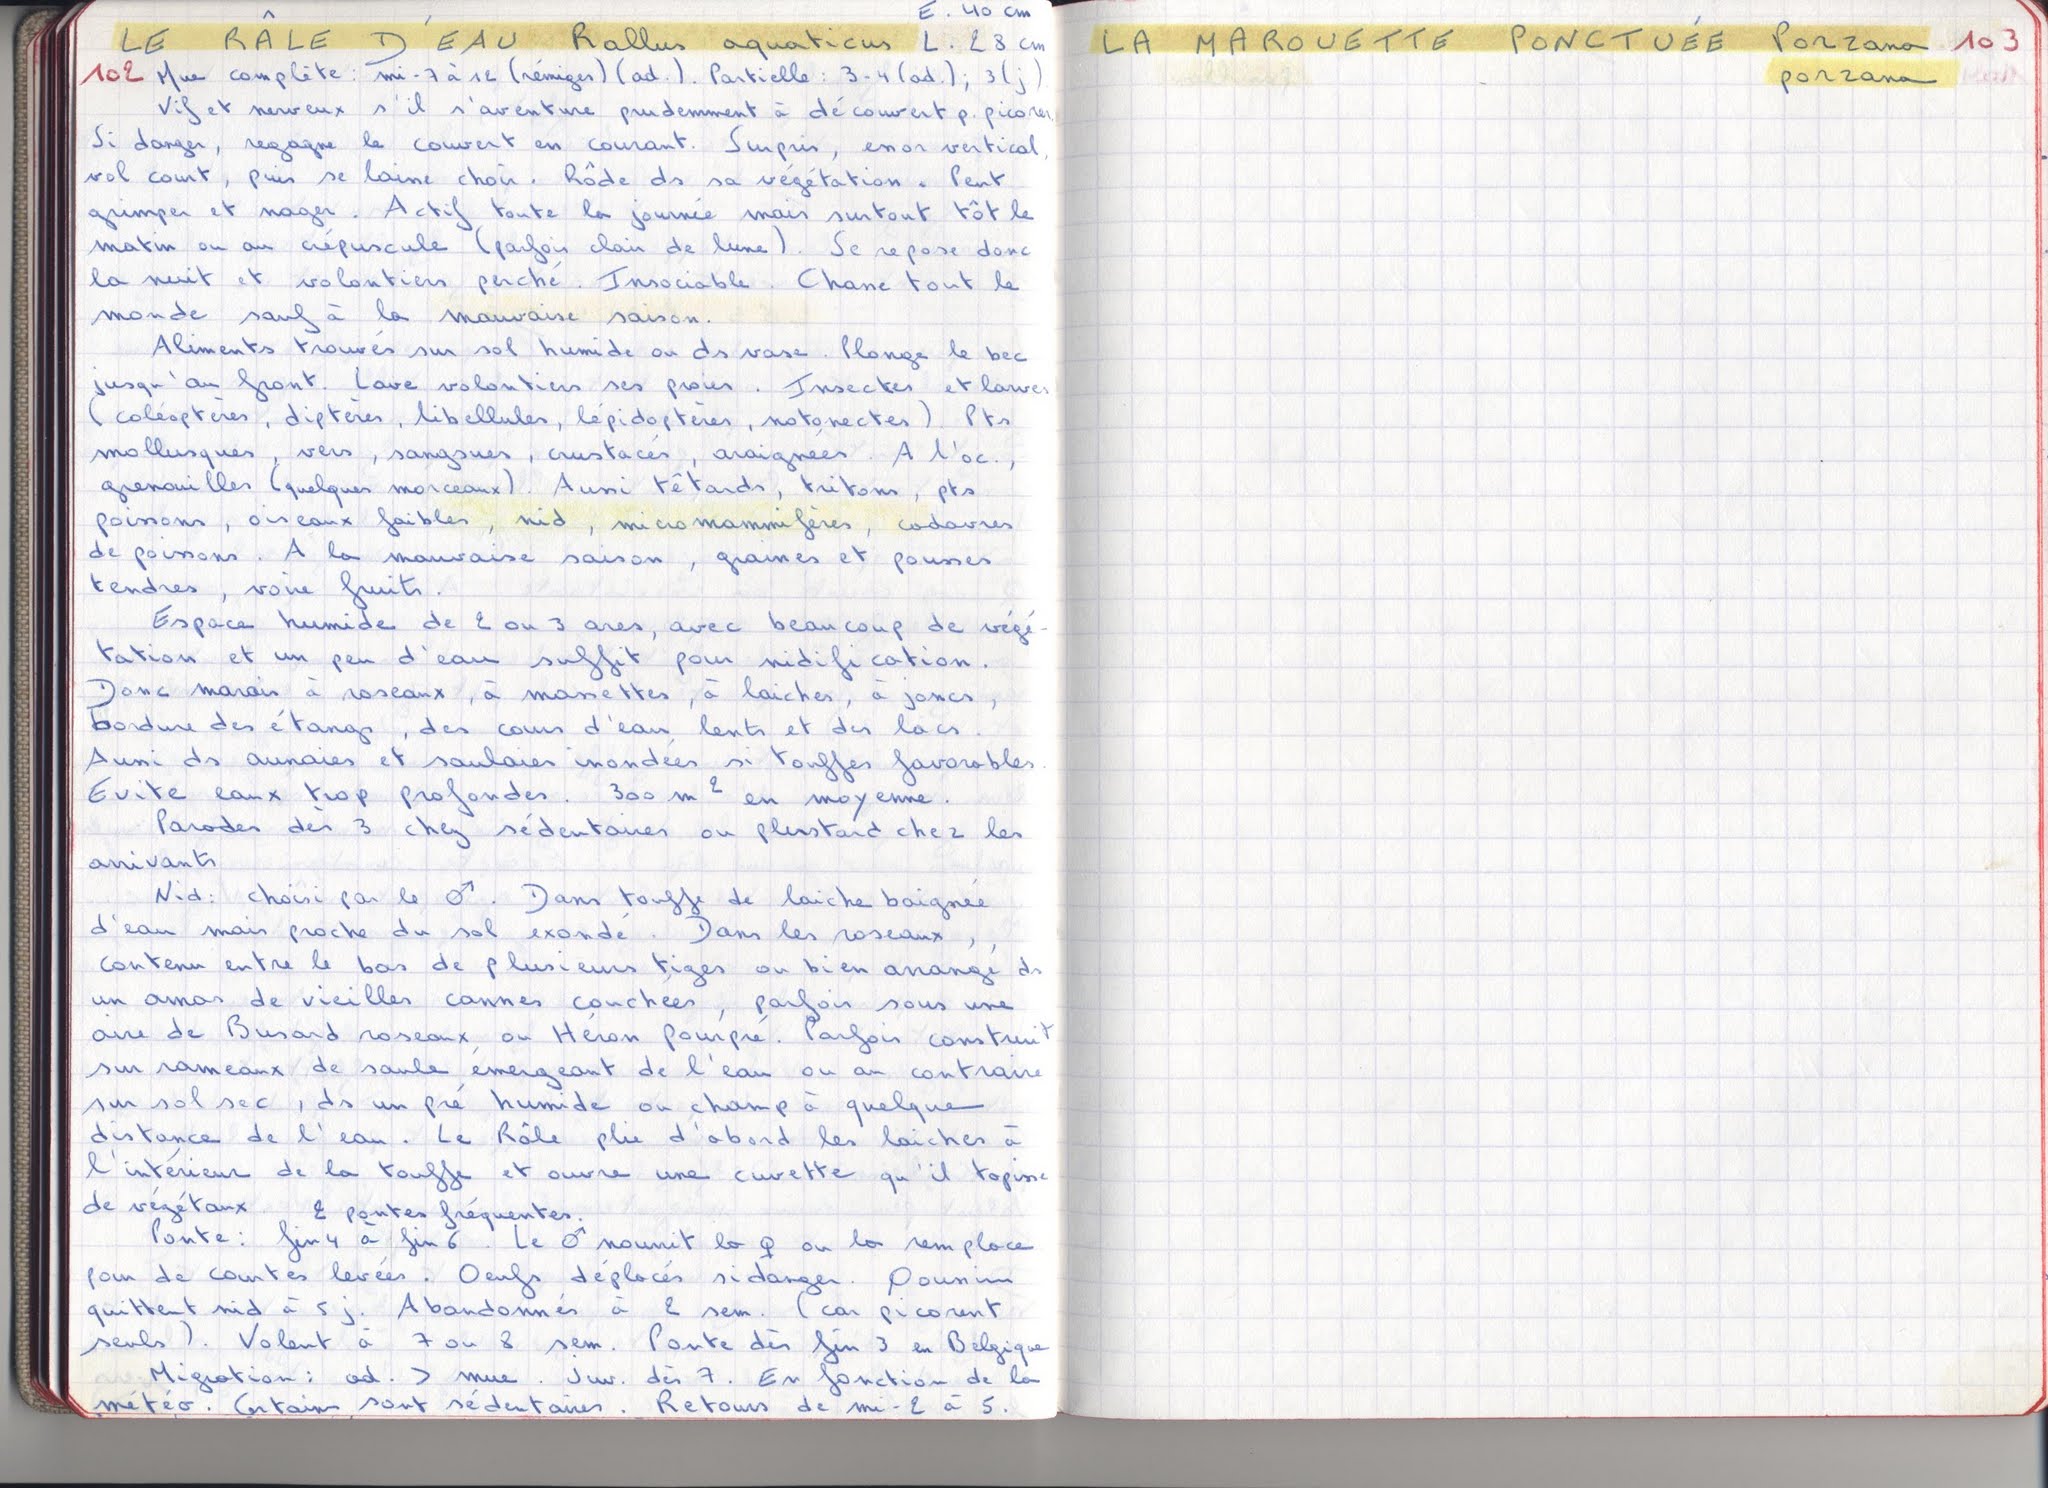 E. 40 cm
LE RÂLE D'EAU Rallus aquaticus L. 28 cm
102 Mue complète : mi-7 à 12 (rémiges) (ad.). Partielle : 3-4 (ad.) ; 3 (j)
Vif et nerveux s'il s'aventure prudemment à découvert p. picorer.
Si danger, regagne le couvert en courant. Surpris, essor vertical,
vol court, puis se laisse choir. Rôde ds sa végétation. Peut
grimper et nager. Actif toute la journée mais surtout tôt le
matin ou au crépuscule (parfois clair de lune). Se repose donc
la nuit et volontiers perché. Insociable. Chasse tout le
monde sauf à la mauvaise saison.
Aliments trouvés sur sol humide ou ds vase. Plonge le bec
jusqu'au front. Lave volontiers ses proies. Insectes et larves
(coléoptères, diptères, libellules, lépidoptères, notonectes). Pts
mollusques, vers, sangsues, crustacés, araignées. A l'oc.,
grenouilles (quelques morceaux). Aussi têtards, tritons, pts
poissons, oiseaux faibles, nid, micromammifères, cadavres
de poissons. A la mauvaise saison, graines et pousses
tendres, voire fruits.
Espace humide de 2 ou 3 ares, avec beaucoup de végé-
tation et un peu d'eau suffit pour nidification.
Donc marais à roseaux, à massettes, à laiches, à joncs,
bordure des étangs, des cours d'eau lents et des lacs.
Aussi ds aunaies et saulaies inondées si touffes favorables.
Evite eaux trop profondes. 300 m² en moyenne.
Parades dès 3 chez sédentaires ou plus tard chez les
arrivants
Nid : choisi par le ♂. Dans touffe de laiche baignée
d'eau mais proche du sol exondé. Dans les roseaux, ,
contenu entre le bas de plusieurs tiges ou bien arrangé ds
un amas de vieilles cannes couchées, parfois sous une
aire de Busard roseaux ou Héron pourpré. Parfois construit
sur rameaux de saule émergeant de l'eau ou au contraire
sur sol sec, ds un pré humide ou champ à quelque
distance de l'eau. Le Râle plie d'abord les laiches à
l'intérieur de la touffe et ouvre une cuvette qu'il tapisse
de végétaux. 2 pontes fréquentes.
Ponte : fin 4 à fin 6. Le ♂ nourrit la ♀ ou la remplace
pour de courtes levées. Oeufs déplacés si danger. Poussins
quittent nid à 5 j. Abandonnés à 2 sem. (car picorent
seuls). Volent à 7 ou 8 sem. Ponte dès fin 3 en Belgique
Migration : ad. > mue. Juv. dès 7. En fonction de la
météo. Certains sont sédentaires. Retours de mi-2 à 5.
LA MAROUETTE PONCTUÉE Porzana 103
porzana